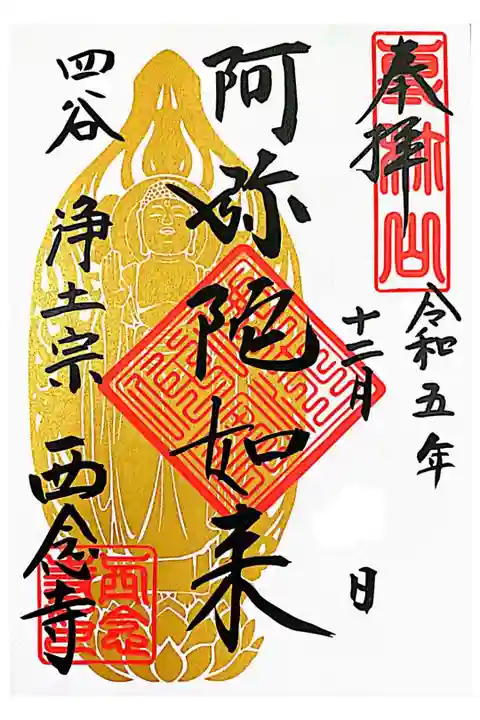 奉拝
令和五年
十二月 日
阿弥陀如来
四谷 浄土宗 西念寺